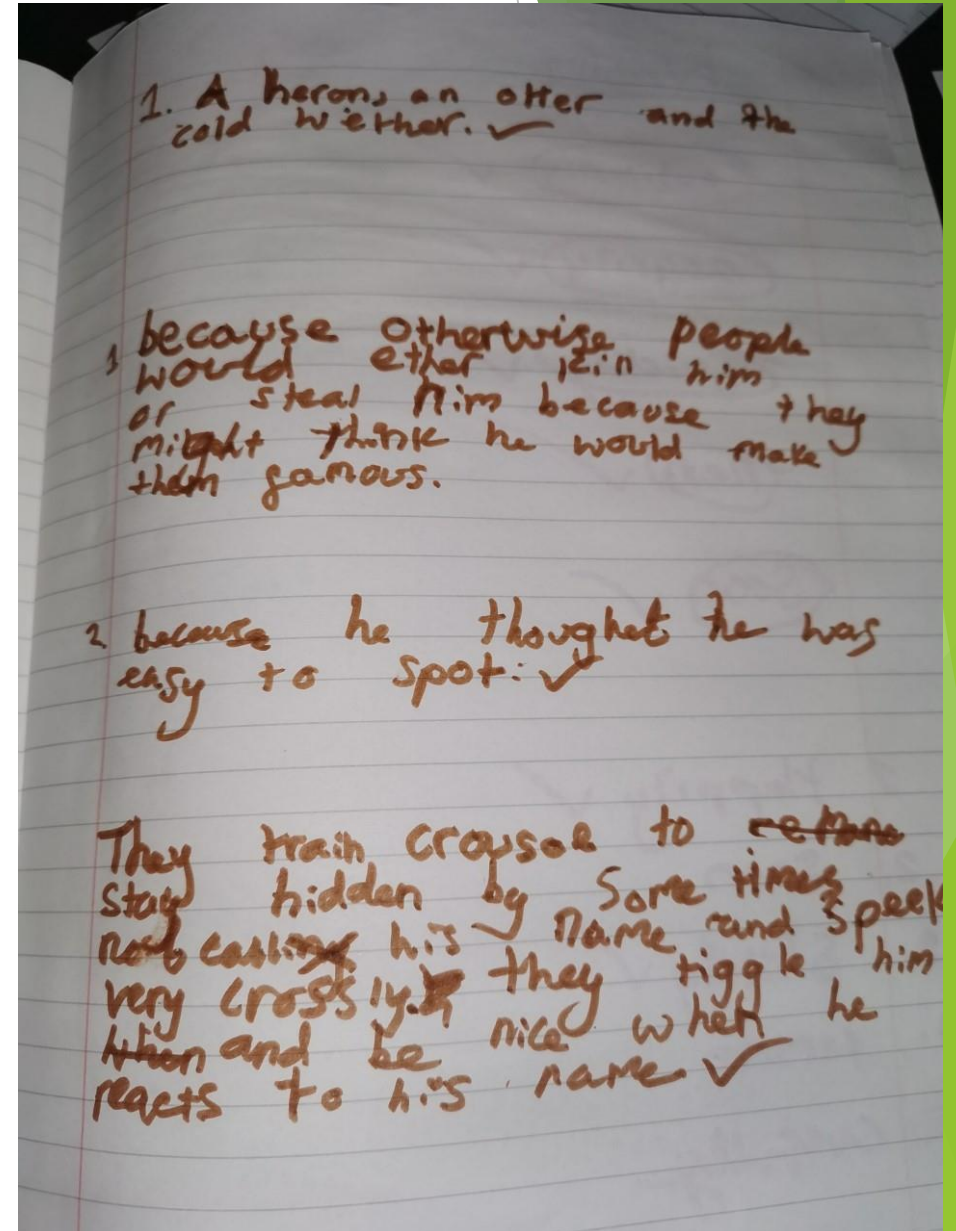 1. A heron, an otter and the
cold wether. ✓
1 because otherwise people
would ether kin him
or steal him because they
might think he would make
them famous.
2 because he thoughet he was
easy to spot. ✓
They train crousoe to
stay hidden by Some times
not calling his name and speek
very crossly. they tiggle him
and be nice when he
reacts to his name ✓